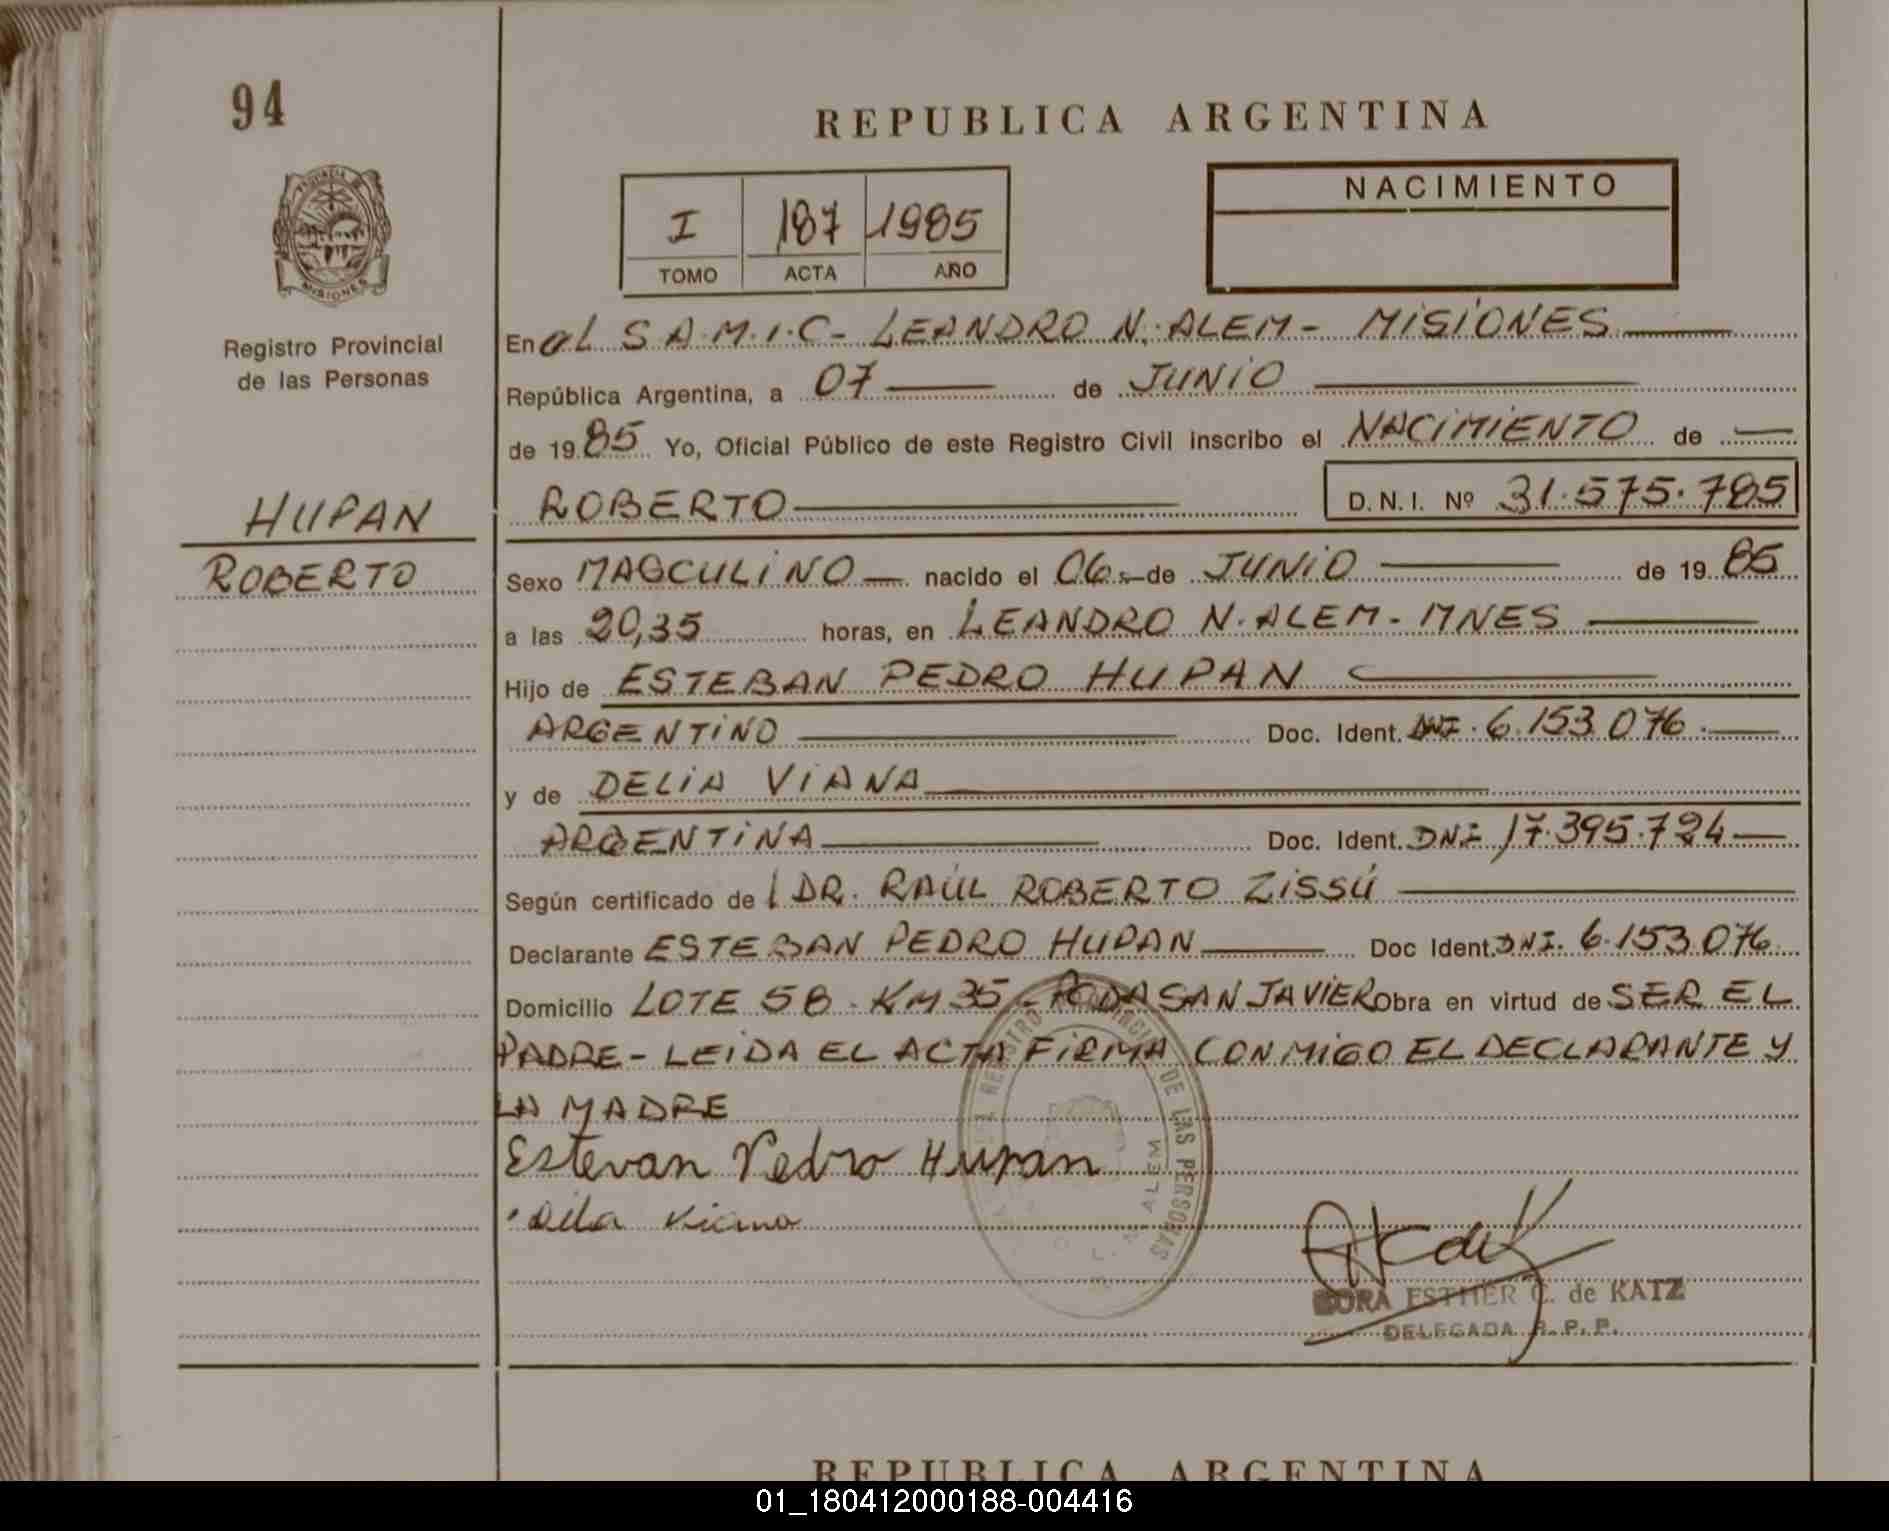 94
REPUBLICA ARGENTINA
PROVINCIA DE
MISIONES
Registro Provincial
de las Personas
I 187 1985
TOMO ACTA AÑO
NACIMIENTO
En el S.A.M.I.C- LEANDRO N. ALEM - MISIONES
República Argentina, a 07 de JUNIO
de 1985 Yo, Oficial Público de este Registro Civil inscribo el NACIMIENTO de
HUPAN
ROBERTO
ROBERTO D.N.I. Nº 31.575.785
Sexo MASCULINO nacido el 06 de JUNIO de 1985
a las 20,35 horas, en LEANDRO N. ALEM - MNES
Hijo de ESTEBAN PEDRO HUPAN
ARGENTINO Doc. Ident. DNI. 6.153.076
y de DELIA VIANA
ARGENTINA Doc. Ident. DNI 17.395.724
Según certificado de DR. RAÚL ROBERTO ZISSÚ
Declarante ESTEBAN PEDRO HUPAN Doc Ident. DNI. 6.153.076
Domicilio LOTE 58 - KM 35 - SAN JAVIER Obra en virtud de SER EL
PADRE - LEIDA EL ACTA FIRMA CONMIGO EL DECLARANTE Y
LA MADRE
Estevan Pedro Hupan
Viana
REGISTRO PROVINCIAL DE LAS PERSONAS
L. N. ALEM
DORA ESTHER C. de KATZ
DELEGADA R.P.P.
REPUBLICA ARGENTINA
01_180412000188-004416